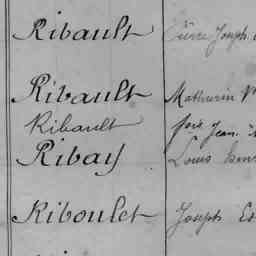 Ribault Joseph
Ribault Mathurin
Ribault Jean
Ribay Louis
Riboulet Joseph